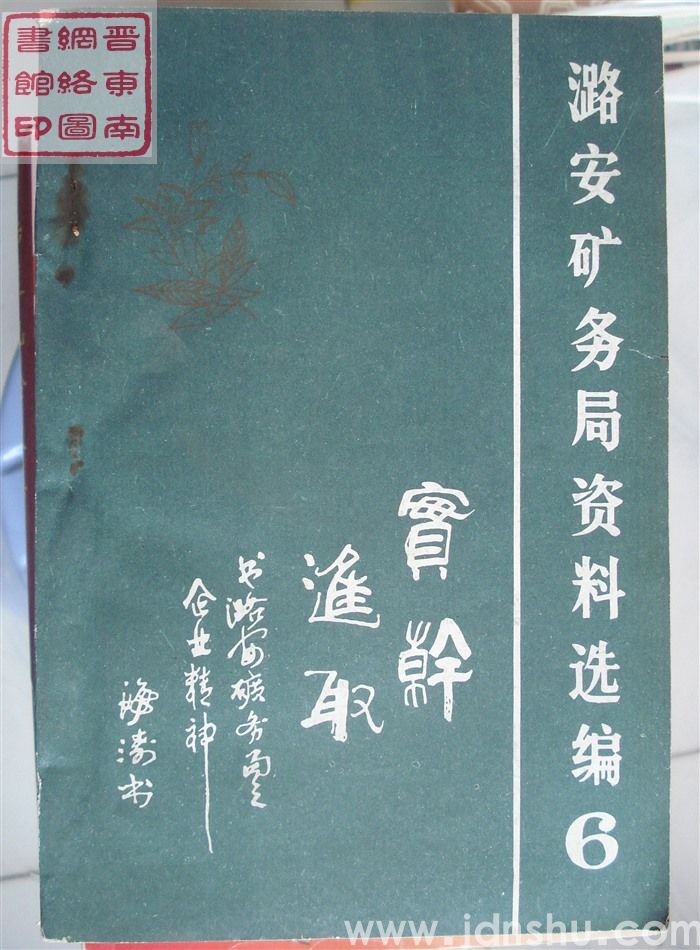 晋東南
網絡圖
書館印
潞安矿务局资料选编6
實幹
進取
书潞安礦务局
企业精神
海涛书
www.jdnshu.com